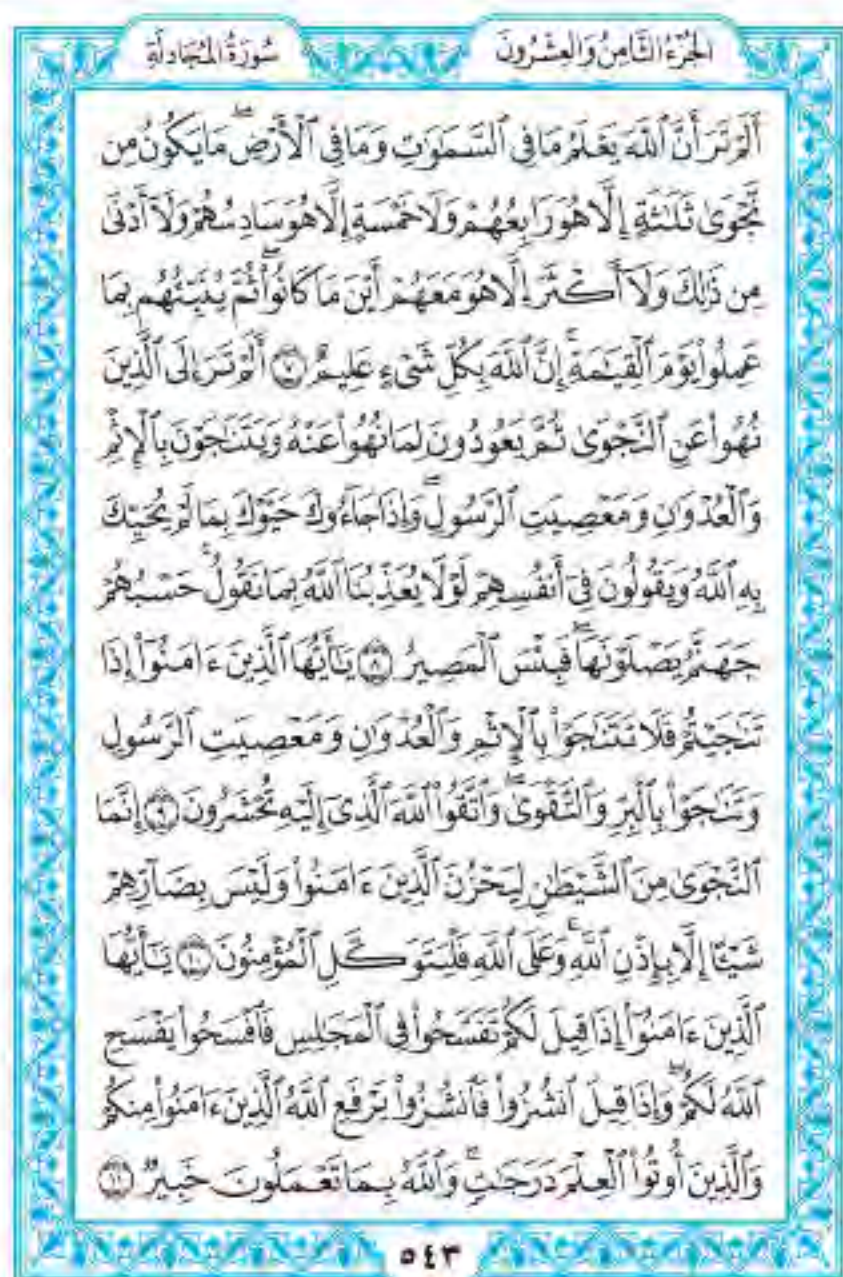 الجُزْءُ الثَّامِنُ وَالْعِشْرُونَ
سُورَةُ المُجَادلَةِ
أَلَمْ تَرَ أَنَّ ٱللَّهَ يَعْلَمُ مَا فِى ٱلسَّمَٰوَٰتِ وَمَا فِى ٱلْأَرْضِۖ مَا يَكُونُ مِن
نَّجْوَىٰ ثَلَٰثَةٍ إِلَّا هُوَ رَابِعُهُمْ وَلَا خَمْسَةٍ إِلَّا هُوَ سَادِسُهُمْ وَلَآ أَدْنَىٰ
مِن ذَٰلِكَ وَلَآ أَكْثَرَ إِلَّا هُوَ مَعَهُمْ أَيْنَ مَا كَانُوا۟ۖ ثُمَّ يُنَبِّئُهُم بِمَا
عَمِلُوا۟ يَوْمَ ٱلْقِيَٰمَةِۚ إِنَّ ٱللَّهَ بِكُلِّ شَىْءٍ عَلِيمٌ ٧ أَلَمْ تَرَ إِلَى ٱلَّذِينَ
نُهُوا۟ عَنِ ٱلنَّجْوَىٰ ثُمَّ يَعُودُونَ لِمَا نُهُوا۟ عَنْهُ وَيَتَنَٰجَوْنَ بِٱلْإِثْمِ
وَٱلْعُدْوَٰنِ وَمَعْصِيَتِ ٱلرَّسُولِۖ وَإِذَا جَآءُوكَ حَيَّوْكَ بِمَا لَمْ يُحَيِّكَ
بِهِ ٱللَّهُ وَيَقُولُونَ فِىٓ أَنفُسِهِمْ لَوْلَا يُعَذِّبُنَا ٱللَّهُ بِمَا نَقُولُۚ حَسْبُهُمْ
جَهَنَّمُ يَصْلَوْنَهَاۖ فَبِئْسَ ٱلْمَصِيرُ ٨ يَٰٓأَيُّهَا ٱلَّذِينَ ءَامَنُوٓا۟ إِذَا
تَنَٰجَيْتُمْ فَلَا تَتَنَٰجَوْا۟ بِٱلْإِثْمِ وَٱلْعُدْوَٰنِ وَمَعْصِيَتِ ٱلرَّسُولِ
وَتَنَٰجَوْا۟ بِٱلْبِرِّ وَٱلتَّقْوَىٰۖ وَٱتَّقُوا۟ ٱللَّهَ ٱلَّذِىٓ إِلَيْهِ تُحْشَرُونَ ٩ إِنَّمَا
ٱلنَّجْوَىٰ مِنَ ٱلشَّيْطَٰنِ لِيَحْزُنَ ٱلَّذِينَ ءَامَنُوا۟ وَلَيْسَ بِضَآرِّهِمْ
شَيْـًٔا إِلَّا بِإِذْنِ ٱللَّهِۚ وَعَلَى ٱللَّهِ فَلْيَتَوَكَّلِ ٱلْمُؤْمِنُونَ ١٠ يَٰٓأَيُّهَا
ٱلَّذِينَ ءَامَنُوٓا۟ إِذَا قِيلَ لَكُمْ تَفَسَّحُوا۟ فِى ٱلْمَجَٰلِسِ فَٱفْسَحُوا۟ يَفْسَحِ
ٱللَّهُ لَكُمْۖ وَإِذَا قِيلَ ٱنشُزُوا۟ فَٱنشُزُوا۟ يَرْفَعِ ٱللَّهُ ٱلَّذِينَ ءَامَنُوا۟ مِنكُمْ
وَٱلَّذِينَ أُوتُوا۟ ٱلْعِلْمَ دَرَجَٰتٍۚ وَٱللَّهُ بِمَا تَعْمَلُونَ خَبِيرٌ ١١
٥٤٣